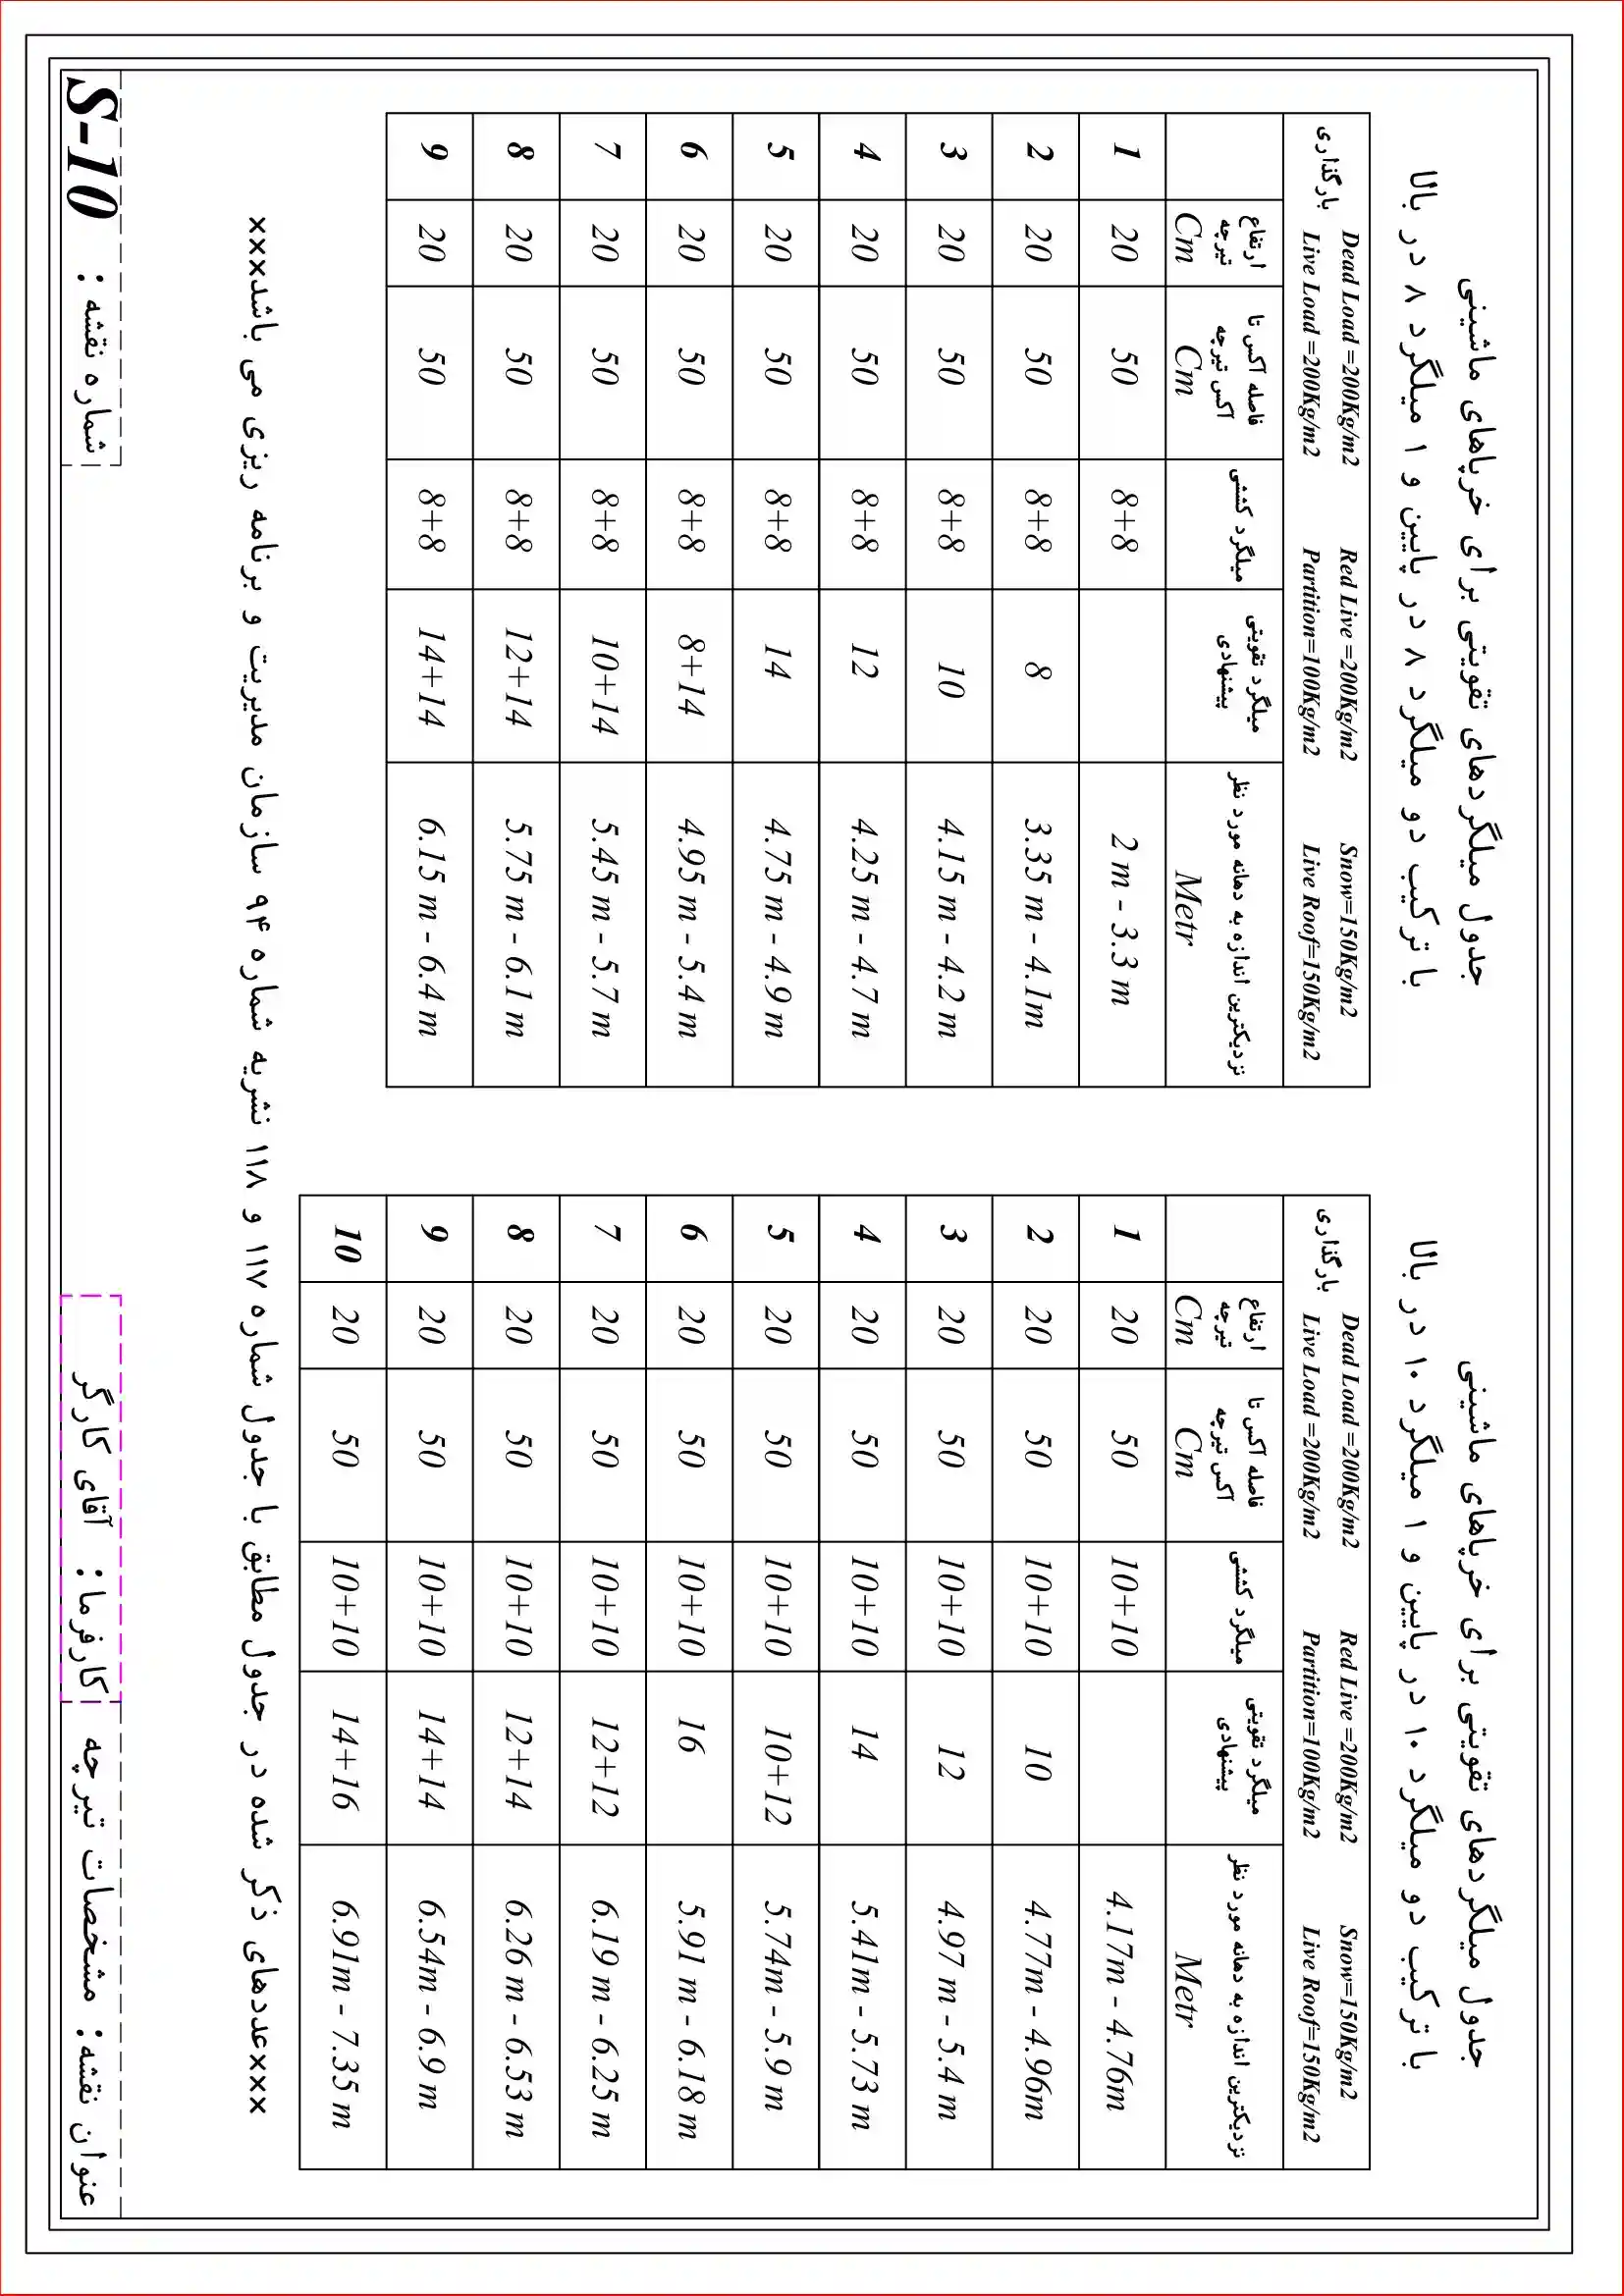 جدول میلگردهای تقویتی برای خرپاهای ماشینی
با ترکیب دو میلگرد ۸ در پایین و ۱ میلگرد ۸ در بالا
بارگذاری Dead Load =200Kg/m2 Red Live =200Kg/m2 Snow=150Kg/m2
Live Load =200Kg/m2 Partition=100Kg/m2 Live Roof=150Kg/m2
ارتفاع تیرچه Cm فاصله آکس تا آکس تیرچه Cm میلگرد کششی میلگرد تقویتی پیشنهادی نزدیکترین اندازه به دهانه مورد نظر Metr
1 20 50 8+8 2 m - 3.3 m
2 20 50 8+8 8 3.35 m - 4.1m
3 20 50 8+8 10 4.15 m - 4.2 m
4 20 50 8+8 12 4.25 m - 4.7 m
5 20 50 8+8 14 4.75 m - 4.9 m
6 20 50 8+8 8+14 4.95 m - 5.4 m
7 20 50 8+8 10+14 5.45 m - 5.7 m
8 20 50 8+8 12+14 5.75 m - 6.1 m
9 20 50 8+8 14+14 6.15 m - 6.4 m
جدول میلگردهای تقویتی برای خرپاهای ماشینی
با ترکیب دو میلگرد ۱۰ در پایین و ۱ میلگرد ۱۰ در بالا
بارگذاری Dead Load =200Kg/m2 Red Live =200Kg/m2 Snow=150Kg/m2
Live Load =200Kg/m2 Partition=100Kg/m2 Live Roof=150Kg/m2
ارتفاع تیرچه Cm فاصله آکس تا آکس تیرچه Cm میلگرد کششی میلگرد تقویتی پیشنهادی نزدیکترین اندازه به دهانه مورد نظر Metr
1 20 50 10+10 4.17m - 4.76m
2 20 50 10+10 10 4.77m - 4.96m
3 20 50 10+10 12 4.97 m - 5.4 m
4 20 50 10+10 14 5.41m - 5.73 m
5 20 50 10+10 10+12 5.74m - 5.9 m
6 20 50 10+10 16 5.91 m - 6.18 m
7 20 50 10+10 12+12 6.19 m - 6.25 m
8 20 50 10+10 12+14 6.26 m - 6.53 m
9 20 50 10+10 14+14 6.54m - 6.9 m
10 20 50 10+10 14+16 6.91m - 7.35 m
×××عددهای ذکر شده در جدول مطابق با جدول شماره ۱۱۷ و ۱۱۸ نشریه شماره ۹۴ سازمان مدیریت و برنامه ریزی می باشد×××
عنوان نقشه: مشخصات تیرچه
کارفرما: آقای کارگر
شماره نقشه: S-10